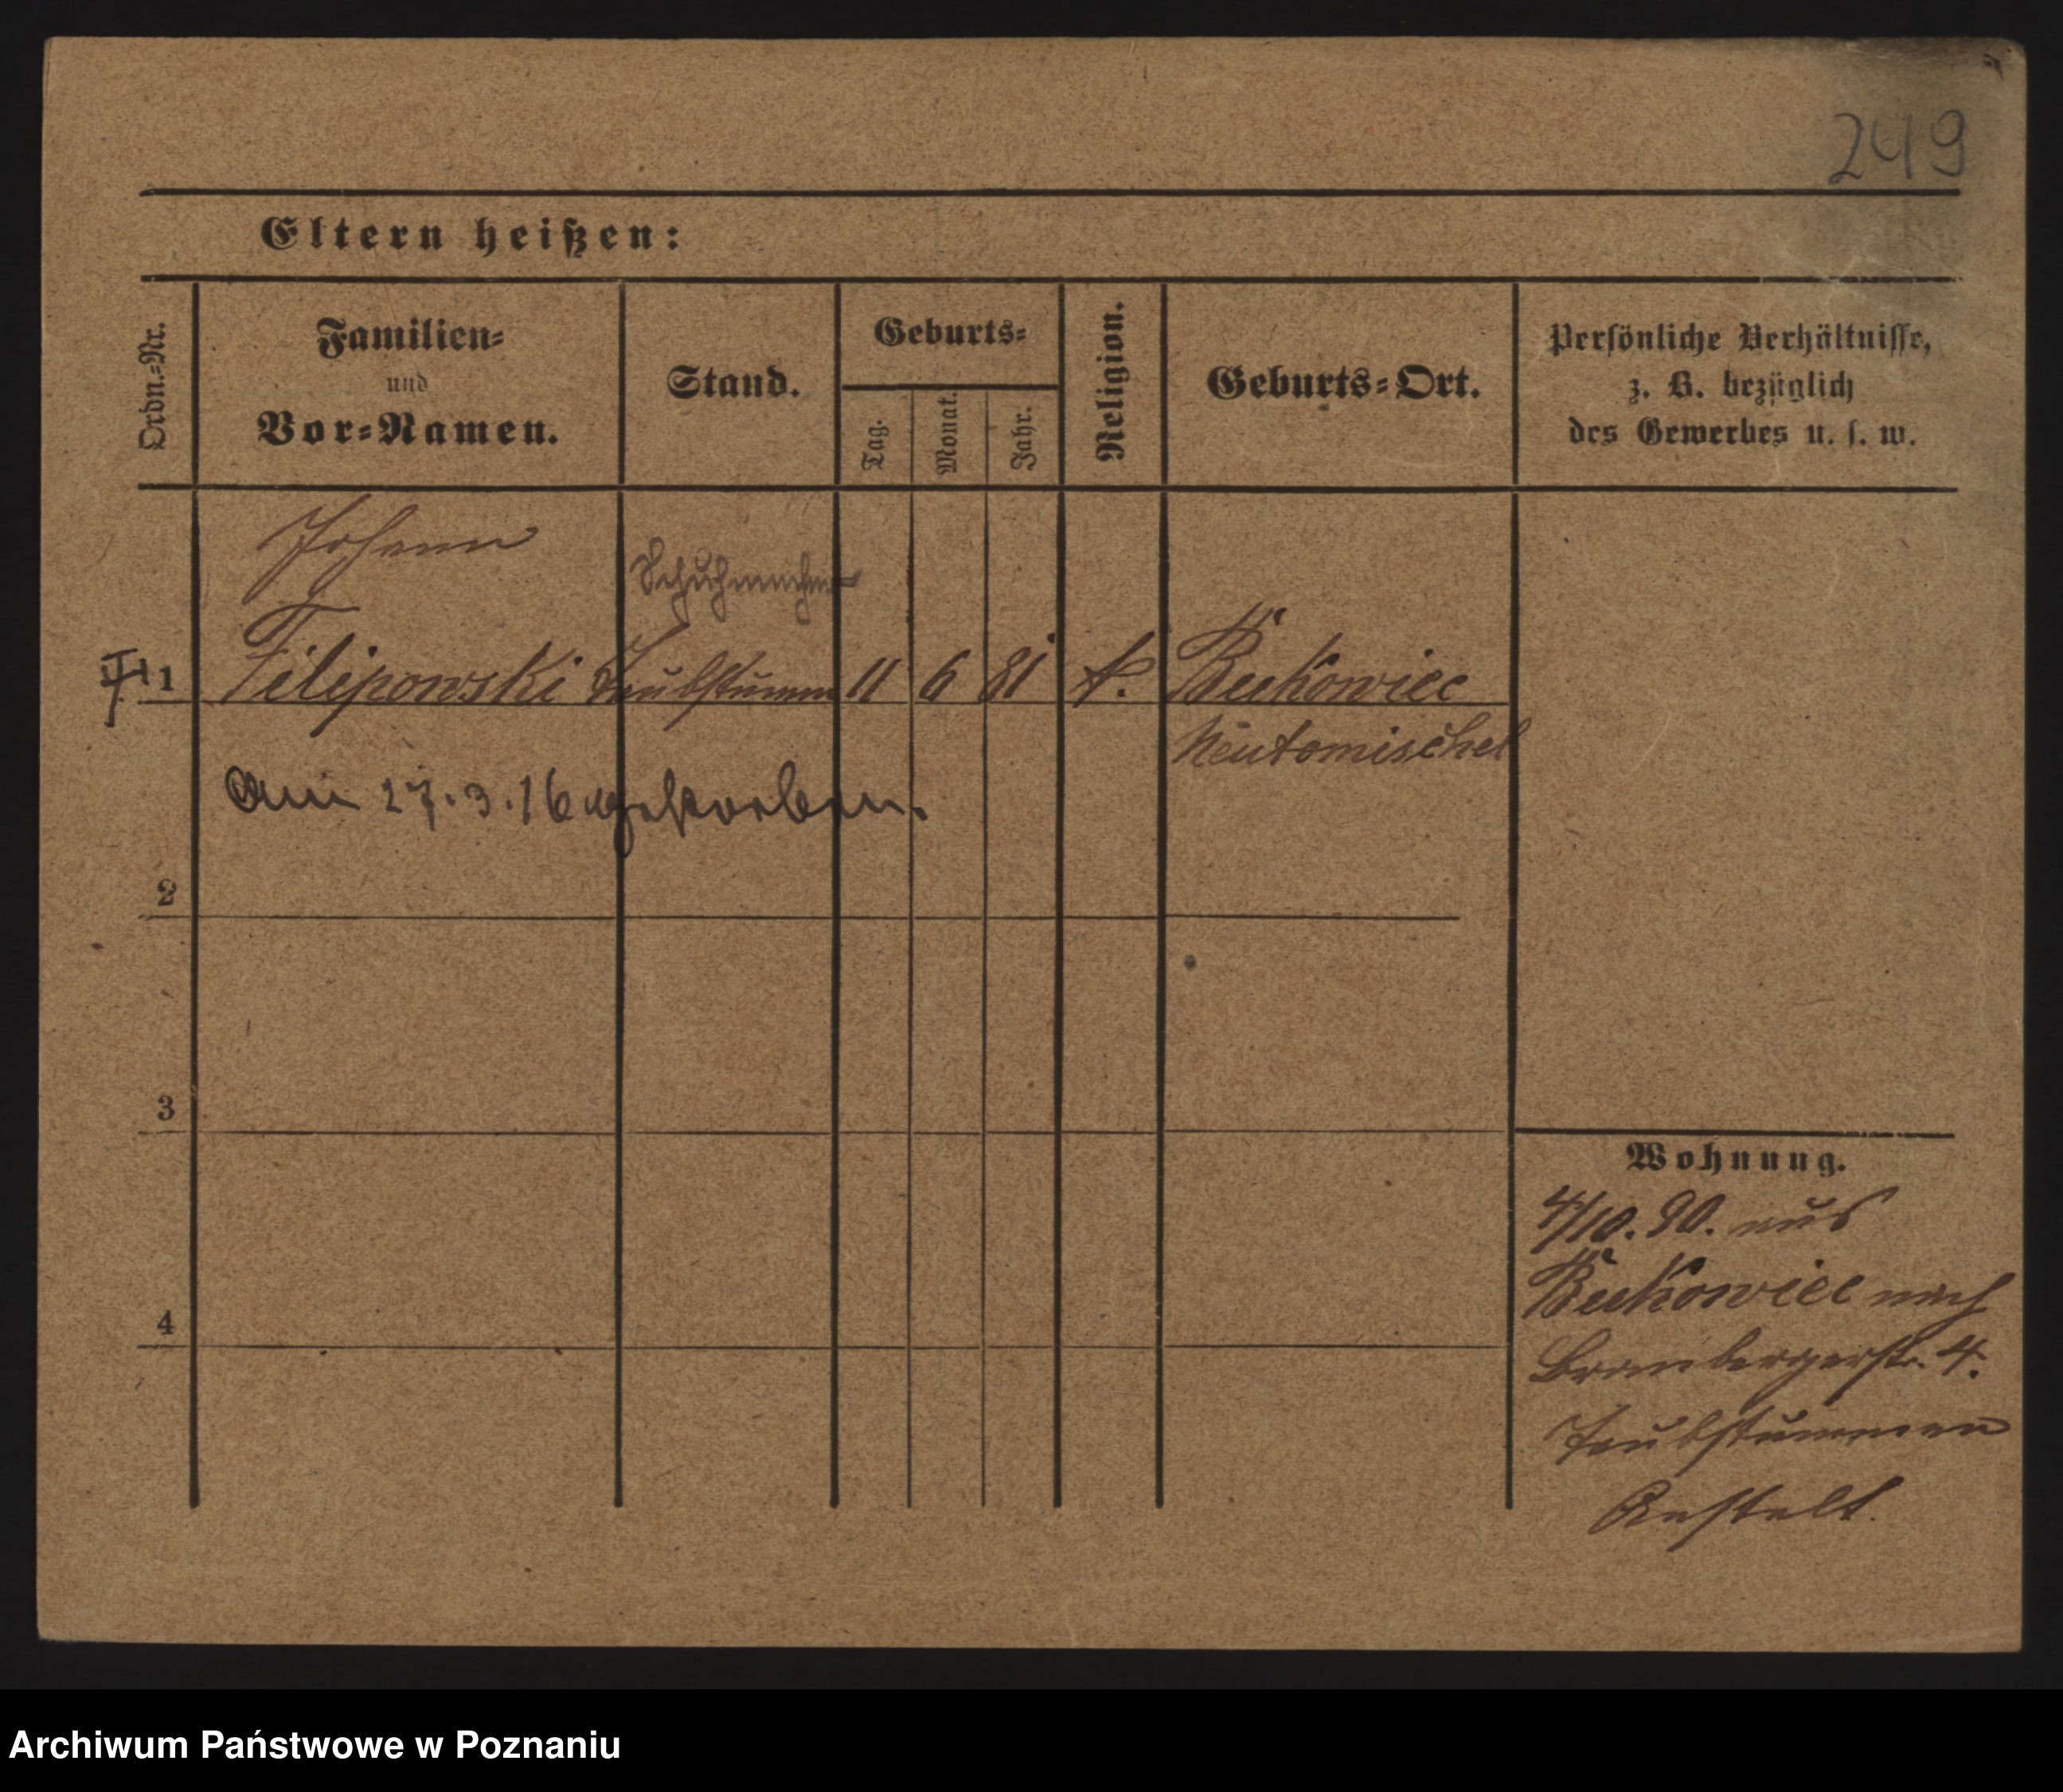 249
Eltern heißen:
Ordn.-Nr.
Familien-
und
Vor-Namen.
Stand.
Geburts-
Tag.
Monat.
Jahr.
Religion.
Geburts-Ort.
Persönliche Verhältnisse,
z. B. bezüglich
des Gewerbes u. s. w.
Johann
Schuhmacher
1 Filipowski Taubstumm 11 6 81 k. Bukowiec
Neutomischel
Am 27.3.16 gestorben.
2
3
4
Wohnung.
4/10.90. aus
Bukowiec nach
Brombergerstr. 4.
Taubstummen
Anstalt.
Archiwum Państwowe w Poznaniu